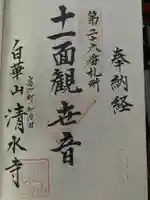 奉納経
第二十六番札所
十一面觀世音
白華山
清水寺